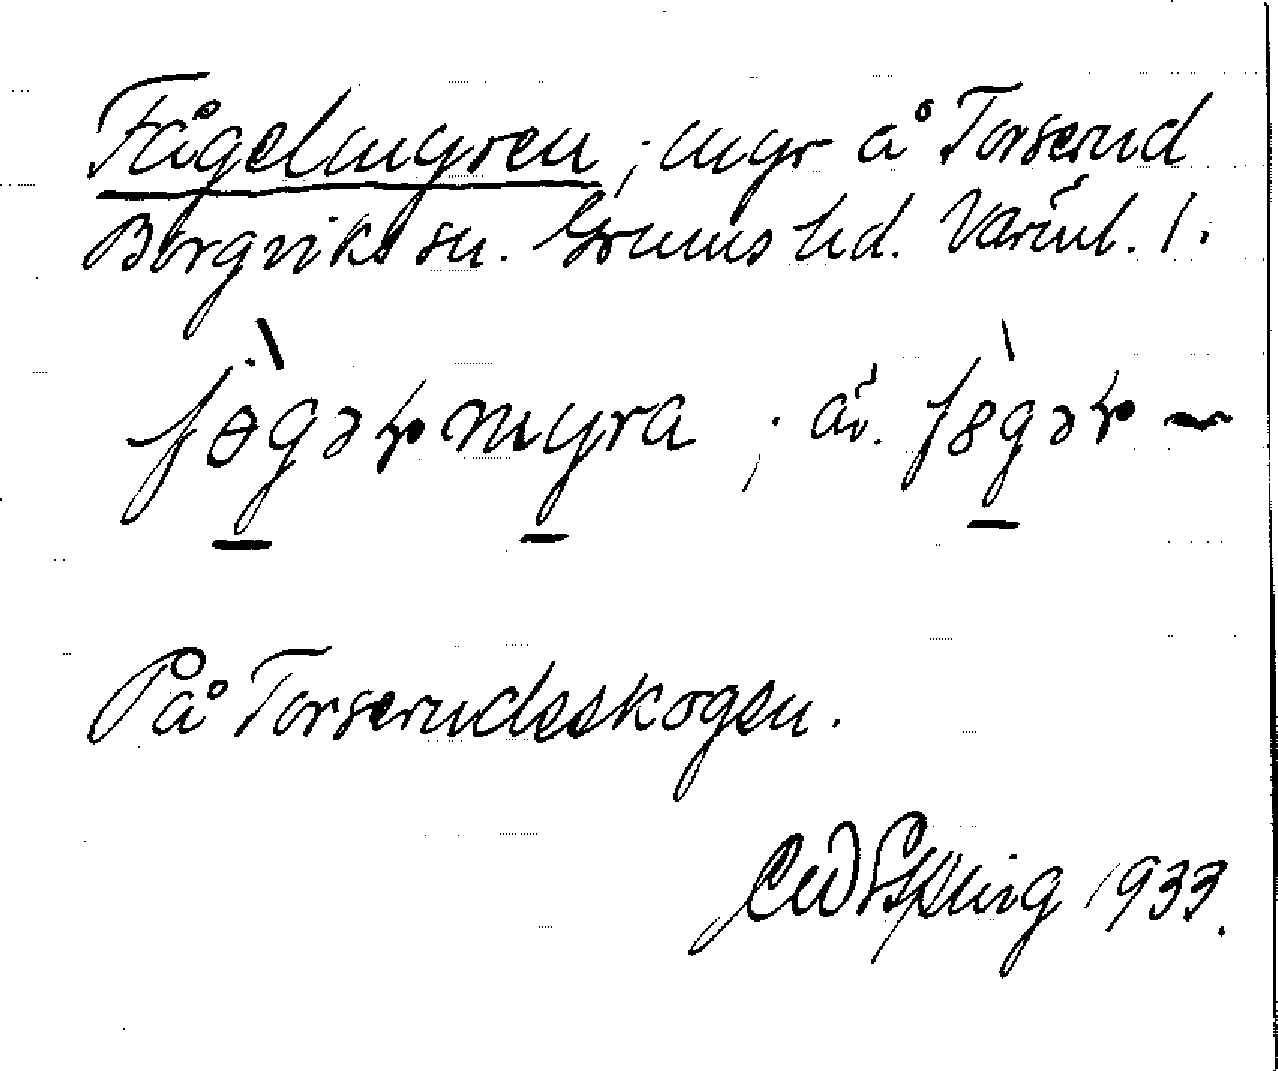 Fågelmyren; myr å Torserud
Borgviks sn. Grums hd. Värml. l.
fɵ̀gəɽmyra ; äv. f8̀gəɽ~
På Torserudsskogen.
1933.